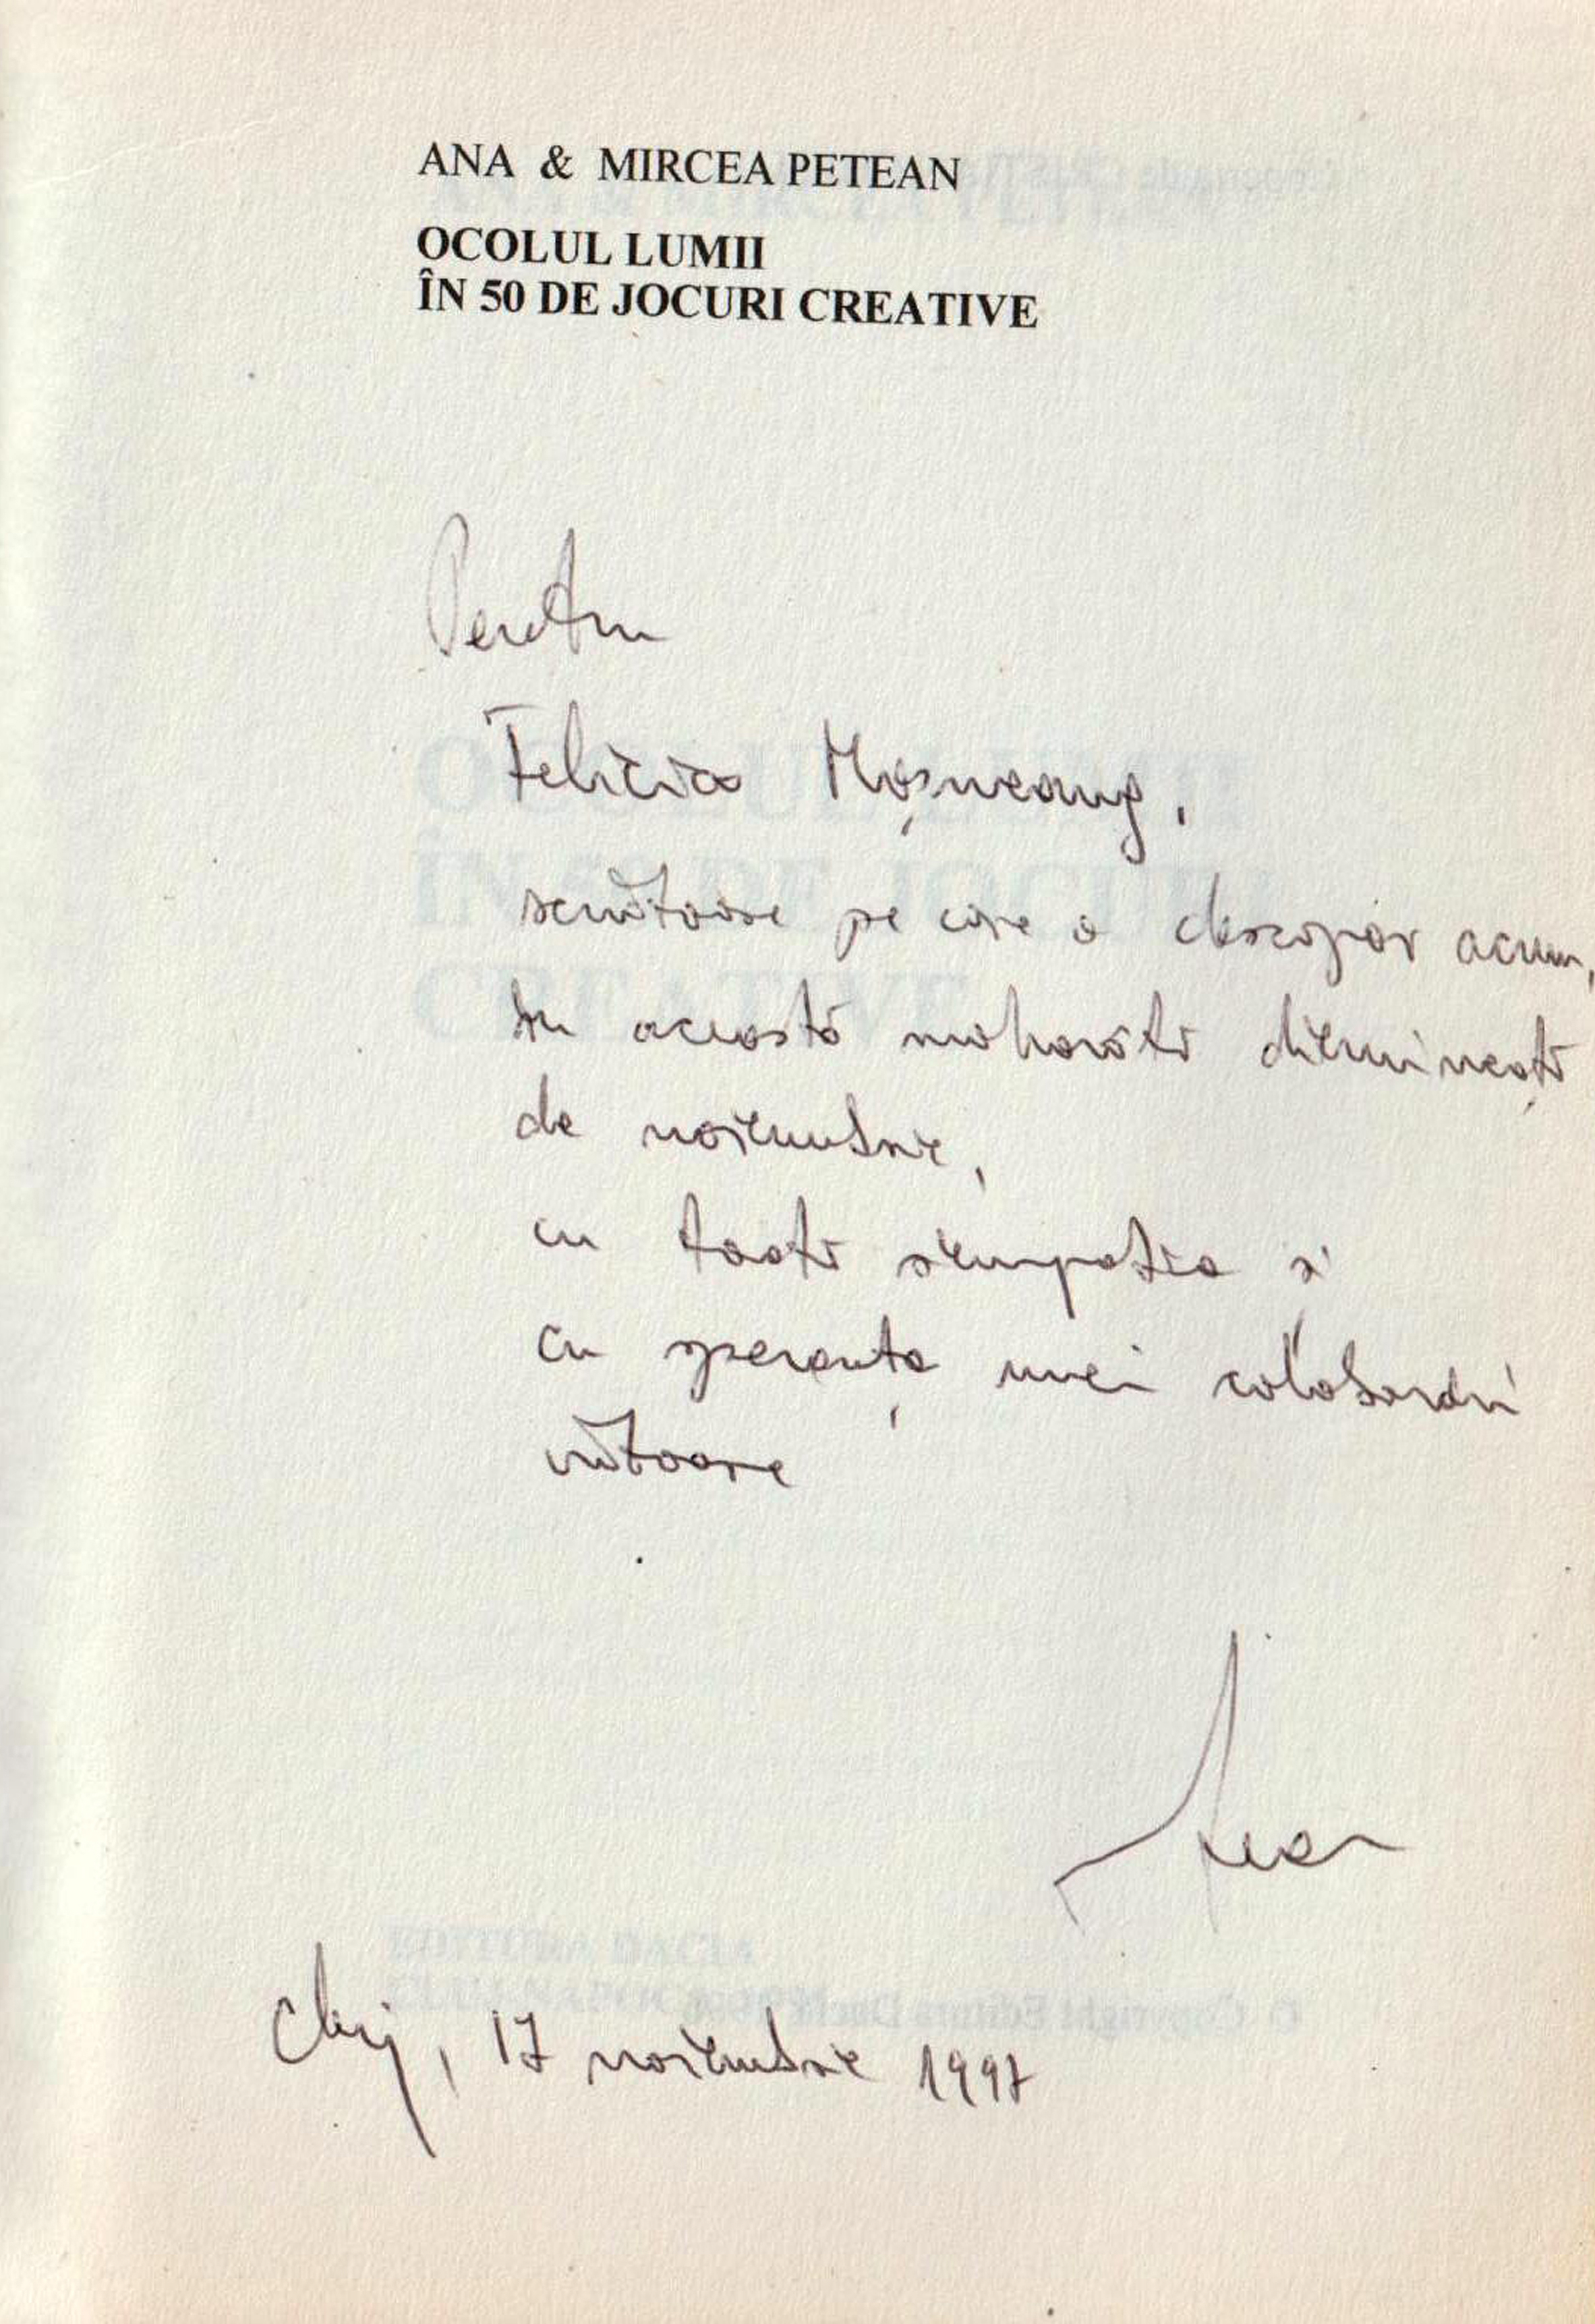 ANA & MIRCEA PETEAN
OCOLUL LUMII
ÎN 50 DE JOCURI CREATIVE
Pentru
Felicia Moșneang,
scriitoare pe care o descopăr acum,
în această mohorâtă dimineață
de noiembrie,
cu toată simpatia și
cu speranța unei colaborări
viitoare
Cluj, 17 noiembrie 1997